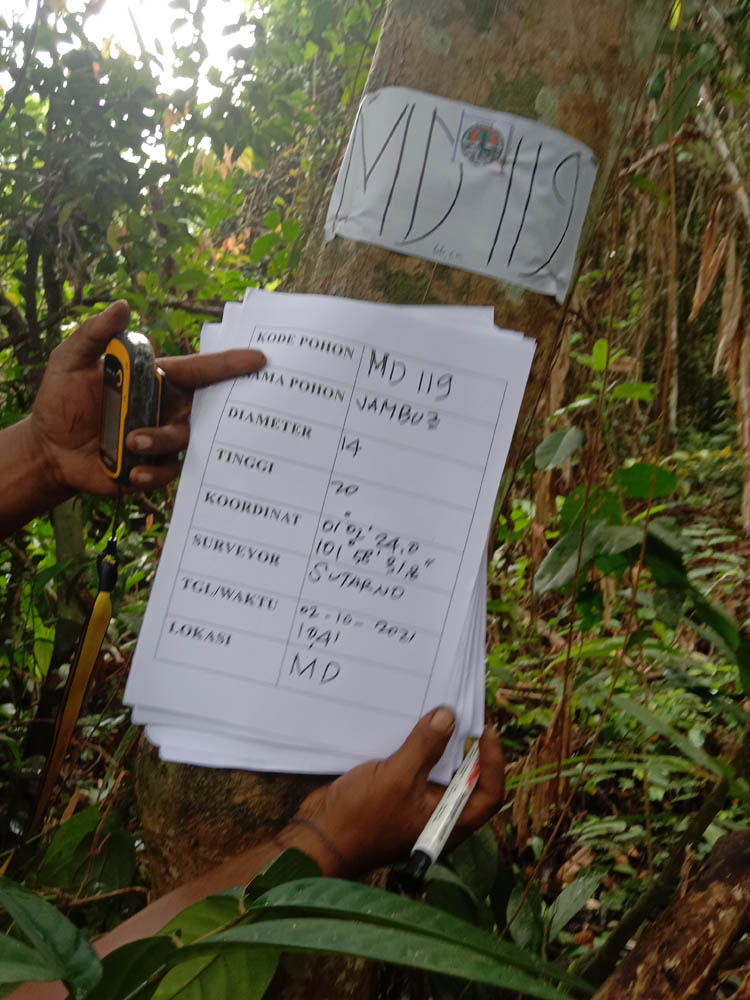 MD 119
KODE POHON MD 119
NAMA POHON JAMBUZ
DIAMETER 14
TINGGI 20
KOORDINAT 01°02'24.0"
101°58'31.8"
SURVEYOR SUTARNO
TGL/WAKTU 02-10-2021
LOKASI MD